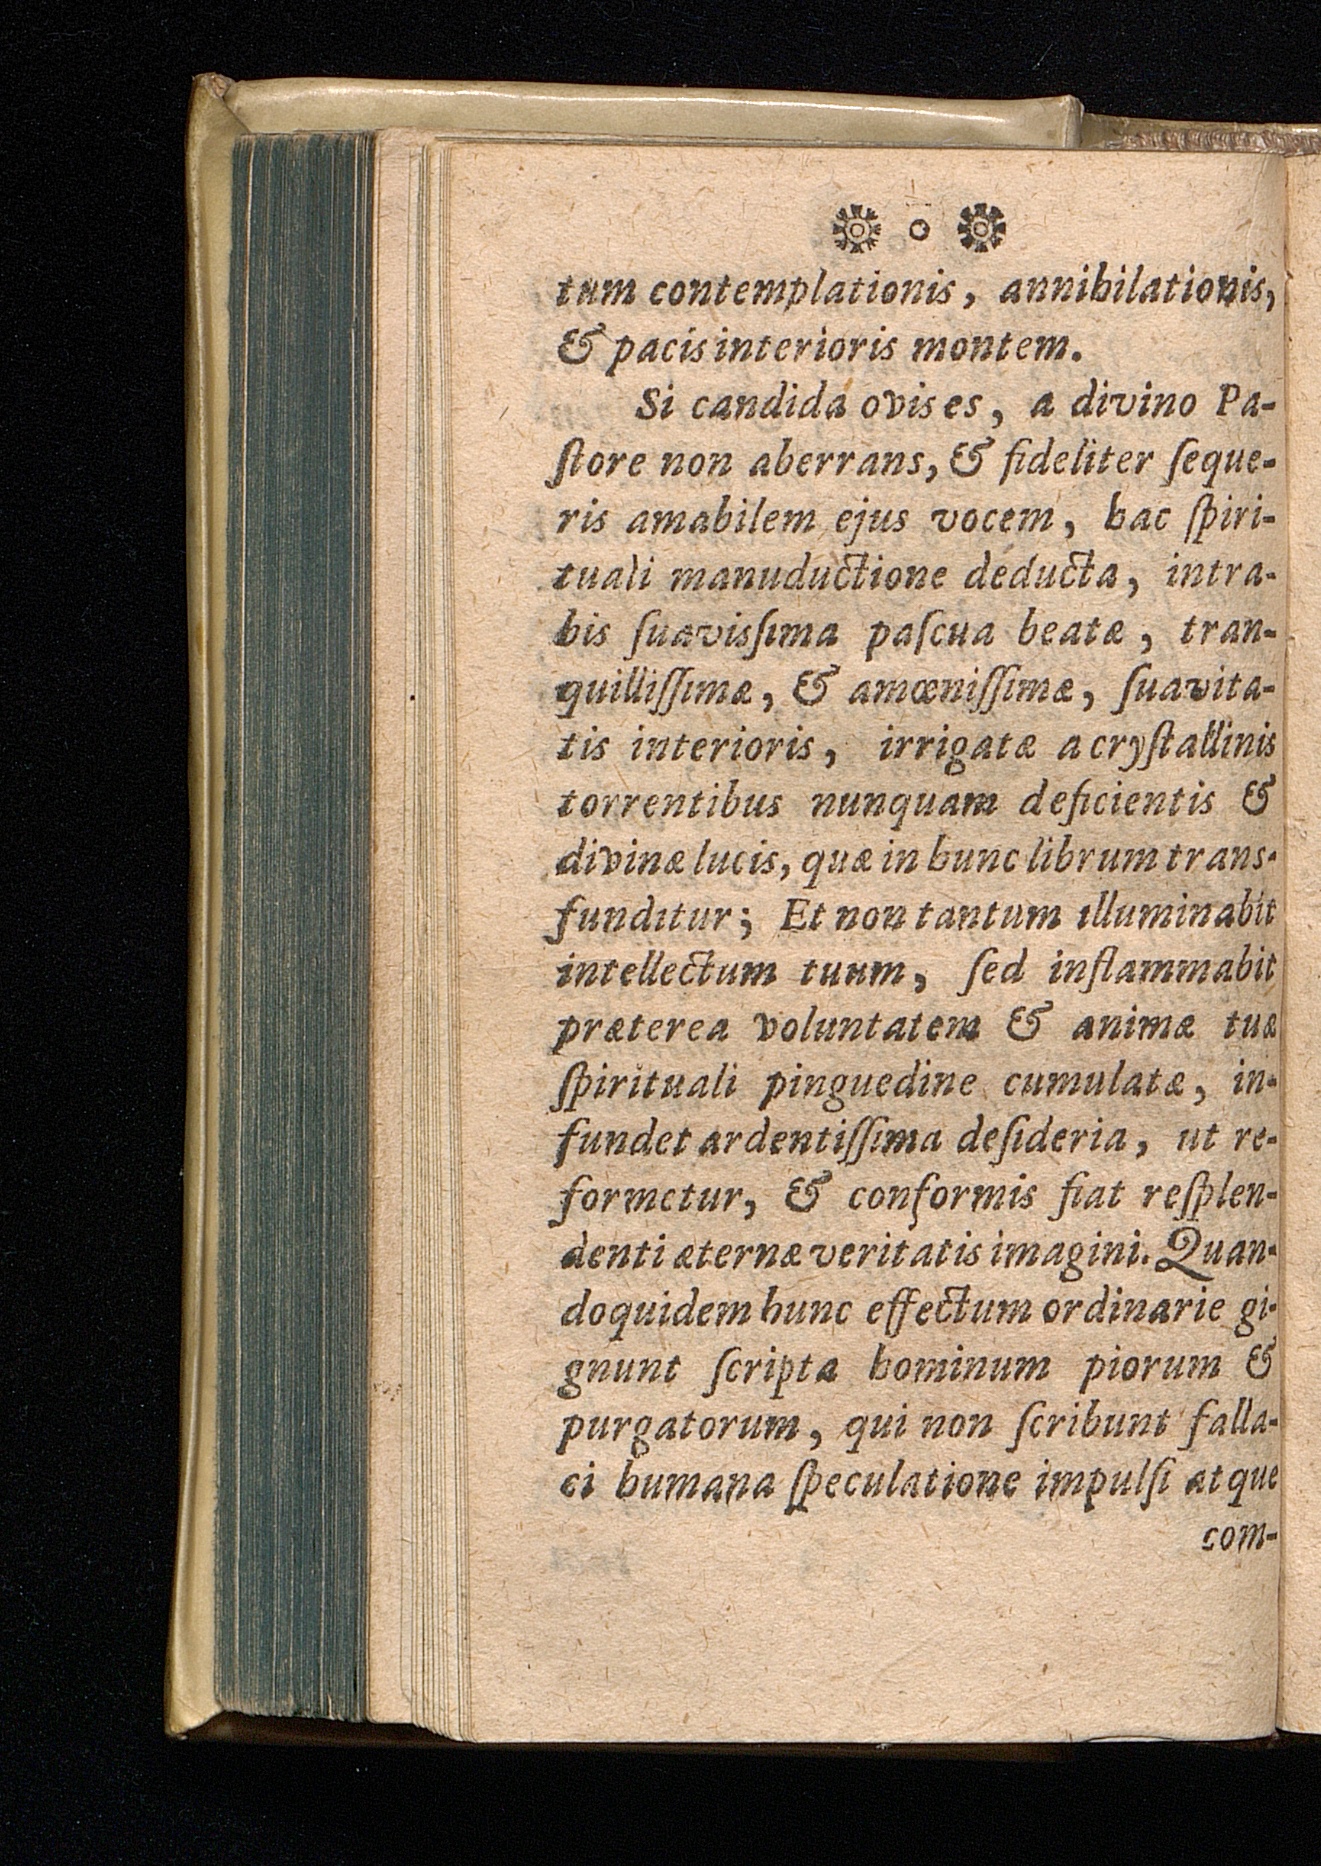 tum contemplationis, annihilationis,
& pacis interioris montem.
Si candida ovis es, a divino Pa-
ſtore non aberrans, & fideliter ſeque-
ris amabilem ejus vocem, hac ſpiri-
tuali manuductione deducta, intra-
bis ſuavisſima paſcua beatæ, tran-
quilliſſimæ, & amœniſſimæ, ſuavita-
tis interioris, irrigatæ a cryſtallinis
torrentibus nunquam deficientis &
divinæ lucis, quæ in hunc librum trans-
funditur; Et non tantum illuminabit
intellectum tuum, ſed inflammabit
præterea voluntatem & animæ tuæ
ſpirituali pinguedine cumulatæ, in-
fundet ardentiſſima deſideria, ut re-
formetur, & conformis fiat reſplen-
denti æternæ veritatis imagini. Quan-
doquidem hunc effectum ordinarie gi-
gnunt ſcripta hominum piorum &
purgatorum, qui non ſcribunt falla-
ci humana ſpeculatione impulſi atque
com-